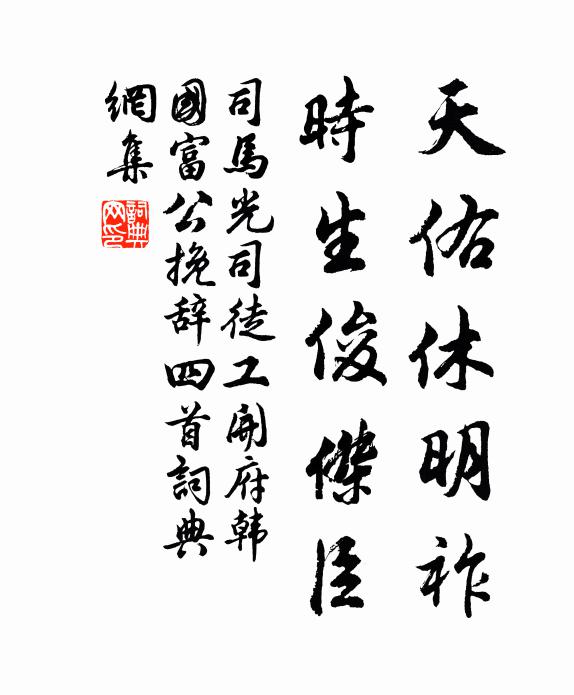 天佑休明祚
時生俊傑臣
司馬光司徒工開府韩
國富公挽辞四首詞典
網集
詞典
网印